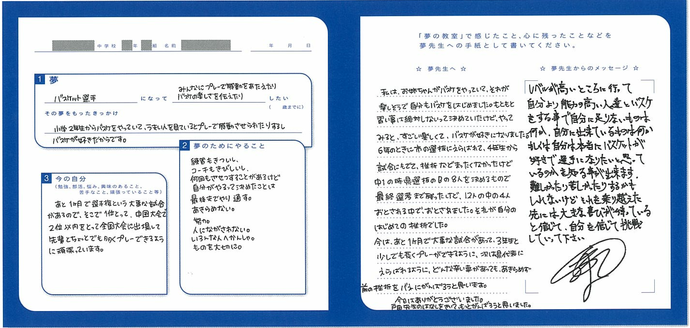 中学校 年 組 名前
年 月 日
1 夢
バスケット選手 になって
みんなにプレーで感動をあたえたり
バスケの楽しさを伝えたり したい
(歳までに)
その夢をもったきっかけ
小学2年生からバスケをやっていて、うまい人を見ているとプレーで感動させられたりするし
バスケが好きだからです。
3 今の自分
(勉強、部活、悩み、興味のあること、
苦手なこと、頑張っていること等)
あと1ヶ月で選手権という大事な試合
があるので、そこで1位として、中国大会で
2位以内をとって全国大会に出場して
先輩たちといっしょでも長くプレーできるように
頑張っています。
2 夢のためにやること
練習もきついし、
コーチもきびしい。
何回もさせってことがあるけど
自分がやるって決めたことは
最後までやり通す。
あきらめない。
努力。
人にながされない。
いろんな人へかんしゃ。
ものを大切に。
「夢の教室」で感じたこと、心に残ったことなどを
夢先生への手紙として書いてください。
☆ 夢先生へ ☆
私は、お姉ちゃんがバスケをやっていて、それが
楽しそうで自分もバスケをはじめました。もともと
習い事は絶対しないって決めていたけど、やって
みると、すごい楽しくて、バスケが好きになりました。
6年のときに市の選抜にえらばれて、4年生から
試合にもでて、挫折などまったくなかったけど
中1の時県選抜の8の8人を決めるもので
最終選考まで残ったけど、12人の中の4人
おとされる中でおとされました。それが自分の
はじめての挫折でした。
今は、あと1ヶ月で大事な試合があって、3年生と
少しでも長くプレーができるように、次は県代表に
えらばれるように、どんな辛い事があっても、あきらめず
前の挫折をバネにがんばろうと思います。
今日はありがとうございました。
☆ 夢先生からのメッセージ ☆
レベルが高いところに行って
自分より能力の高い人達とバスケ
をする事で自分に足りないものは
何か、自分に出来ているものは何か
それは自分は本当にバスケットが
好きで選手になりたいと思って
いるのかを知る事が出来ます。
難しかったり苦しかったりするかも
しれないけど、それを乗り越えた
先には大きな喜びが待っている
と信じて、自分を信じて挑戦
していって下さい